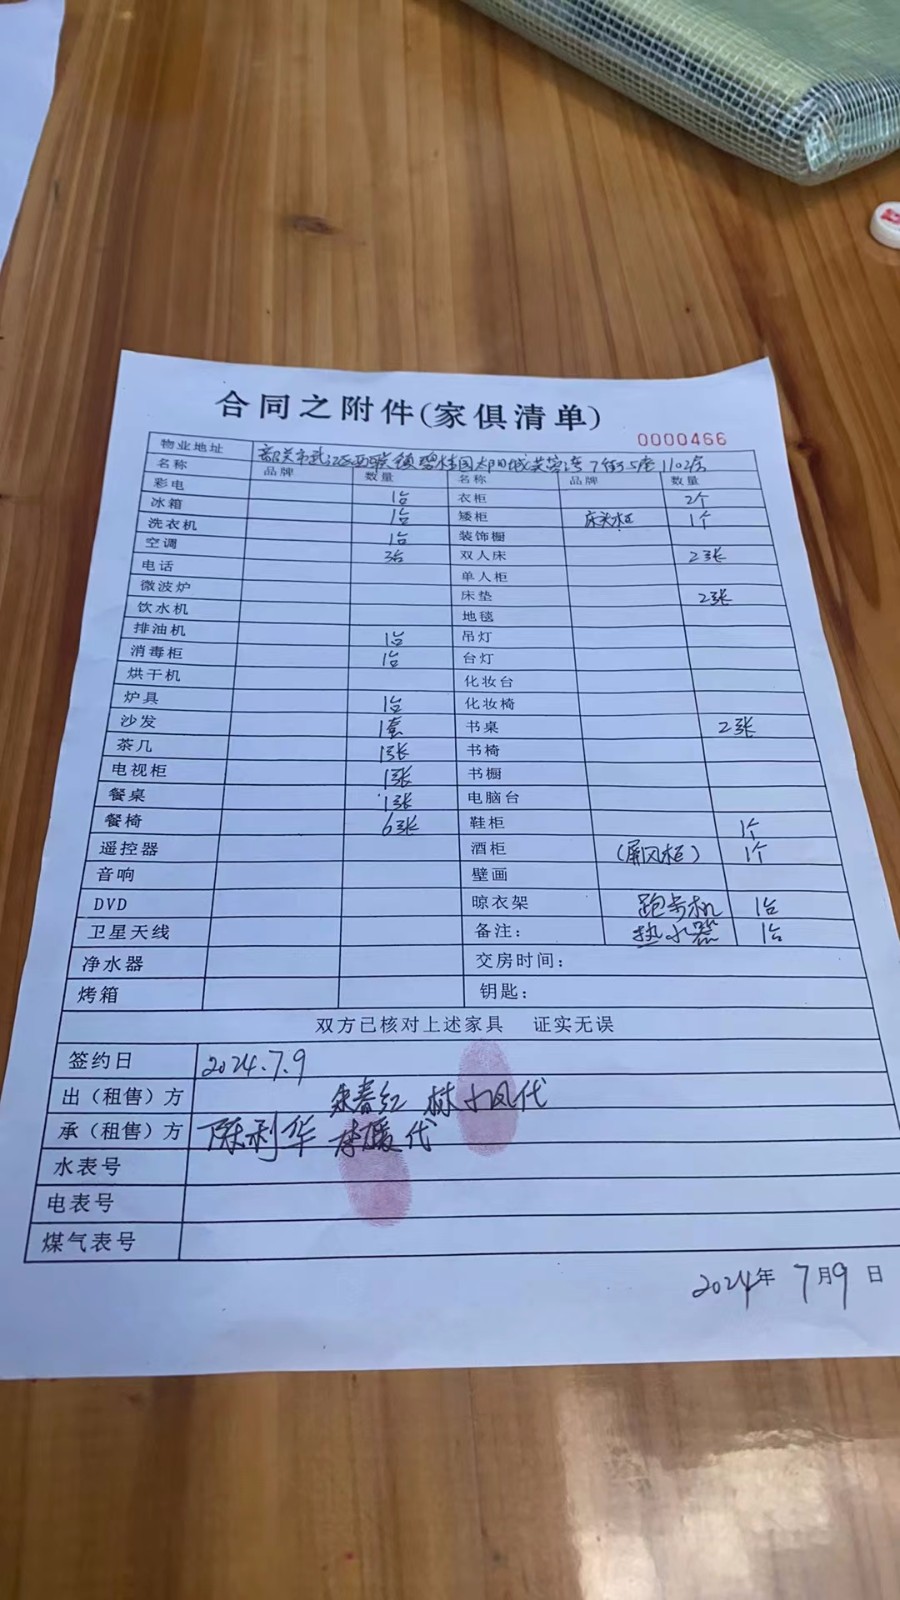 合同之附件(家俱清单)
0000466
物业地址 韶关市武江区西联镇碧桂园太阳城芙蓉湾7街5座1102房
名称 品牌 数量 名称 品牌 数量
彩电 1台 衣柜 2个
冰箱 1台 矮柜 床头柜 1个
洗衣机 1台 装饰橱
空调 3台 双人床 2张
电话 单人柜
微波炉 床垫 2张
饮水机 地毯
排油机 1台 吊灯
消毒柜 1台 台灯
烘干机 化妆台
炉具 1台 化妆椅
沙发 1套 书桌 2张
茶几 1张 书椅
电视柜 1张 书橱
餐桌 1张 电脑台
餐椅 6张 鞋柜 1个
遥控器 酒柜 (屏风柜) 1个
音响 壁画
DVD 晾衣架 跑步机 1台
卫星天线 备注: 热水器 1台
净水器 交房时间:
烤箱 钥匙:
双方已核对上述家具 证实无误
签约日 2024.7.9
出(租售)方 朱春红 林小凤代
承(租售)方 陈利华 李媛代
水表号
电表号
煤气表号
2024年 7月9日